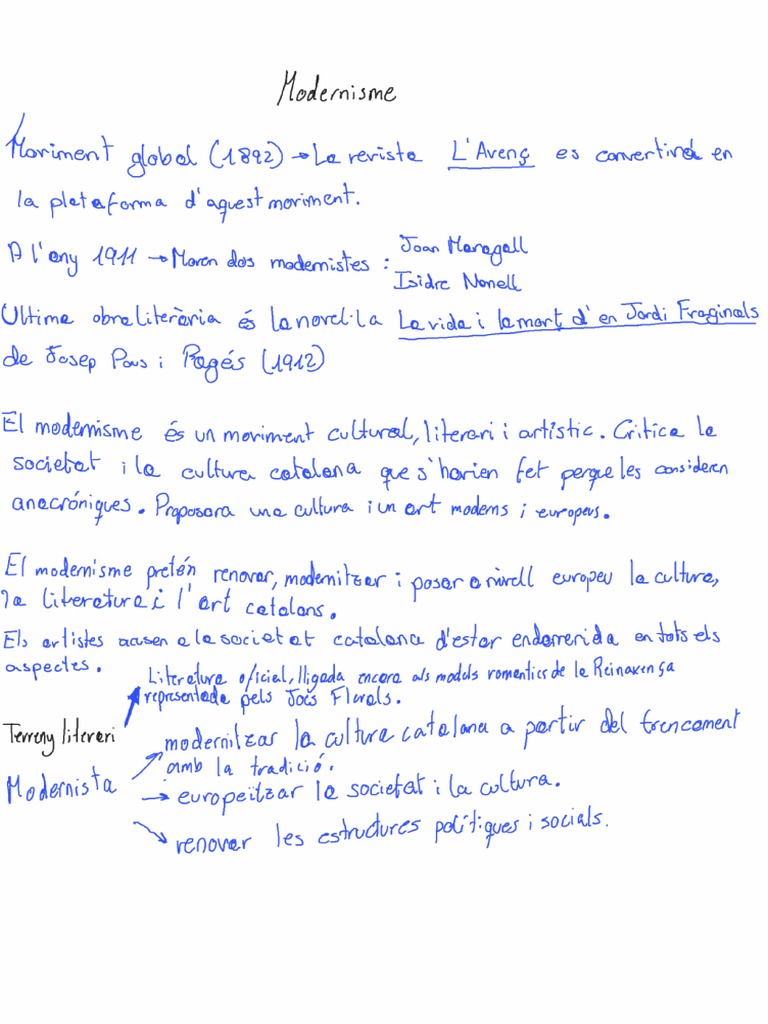 Modernisme
Moviment global (1892) → La revista L'Avenç es convertirà en
la plataforma d'aquest moviment.
A l'any 1911 → Moren dos modernistes : Joan Maragall
Isidre Nonell
Ultima obra literària és la novel·la La vida i la mort d'en Jordi Fraginals
de Josep Pous i Pagés (1912)
El modernisme és un moviment cultural, literari i artístic. Critica la
societat i la cultura catalana que s'havien fet perque les consideren
anacróniques. Proposara una cultura i un art moderns i europeus.
El modernisme pretén renovar, modernitzar i posar a nivell europeu la cultura,
la literatura i l'art catalans.
Els artistes acusen a la societat catalana d'estar endarrerida en tots els
aspectes.
Literatura oficial, lligada encara als models romantics de la Reinaxença
representada pels Jocs Florals.
Terreny literari
modernitzar la cultura catalana a partir del trencament
amb la tradició.
Modernista
→ europeïtzar la societat i la cultura.
renovar les estructures polítiques i socials.